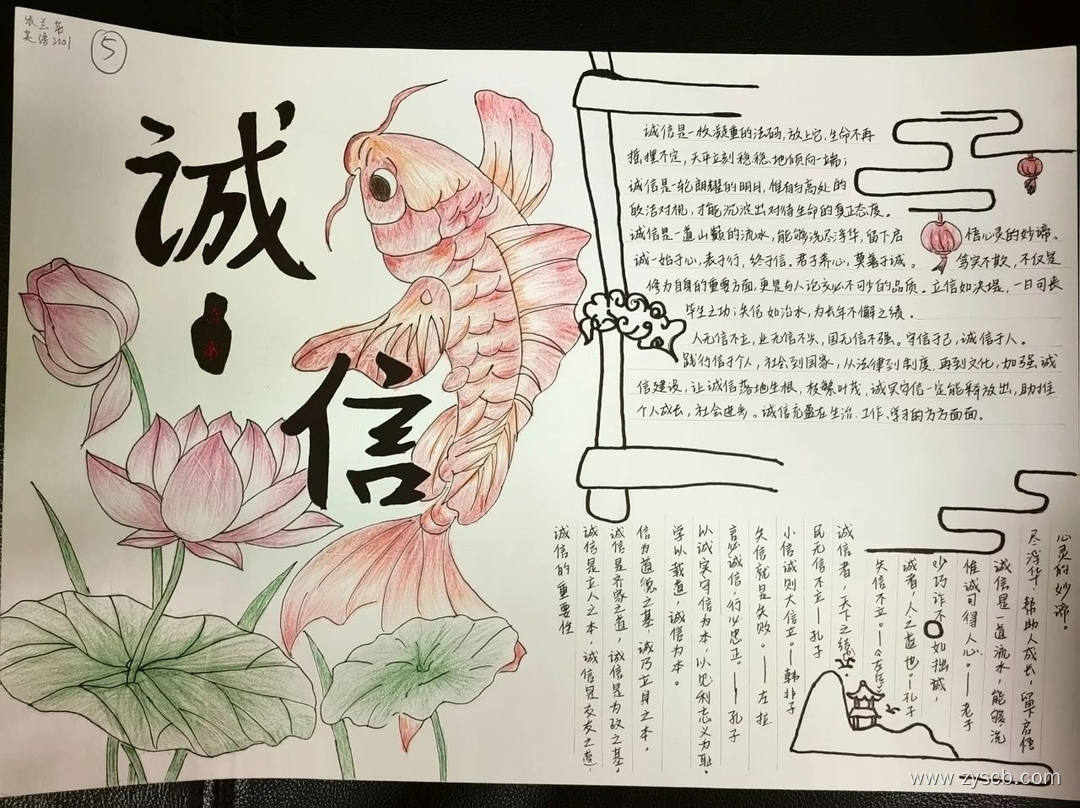 英语2101
5
诚
信
诚信是一枚凝重的法码,放上它,生命不再
摇摆不定,天平立刻稳稳地倾向一端;
诚信是一轮朗耀的明月,惟有与高处的
皎洁对视,才能沉淀出对待生命的真正态度。
诚信是一道山巅的流水,能够洗尽浮华,留下启
悟心灵的妙谛。
诚一始于心,表于行,终于信。君子养心,莫善于诚。
笃实不欺,不仅是
修为自身的重要方面,更是与人论交必不可少的品质。立信如决堤,一日可丧
毕生之功;失信如治水,为长年不懈之绩。
人无信不立,业无信不兴,国无信不强。守信于己,诚信于人。
践行信于个人,社会到国家,从法律到制度,再到文化,加强诚
信建设,让诚信落地生根,枝繁叶茂,诚实守信一定能释放出,助推
个人成长,社会进步。诚信充盈在生活、工作、学习的方方面面。
心灵的妙谛。
尽浮华 帮助人成长,留下启悟
诚信是一道流水,能够洗
惟诚可得人心。——老子
巧诈不如拙诚,
诚者,人之道也。——孔子
失信不立。——《左传》
诚信者,天下之结
民无信不立——孔子
小信诚则大信立。——韩非子
失信就是失败。——左拉
言必诚信,行必忠正。——孔子
以诚实守信为本,以见利忘义为耻。
学以载道,诚信为本。
信为道德之基,诚乃立身之本。
诚信是齐家之道,诚信是为政之基。
诚信是立人之本,诚信是交友之道,
诚信的重要性
www.zyscb.com